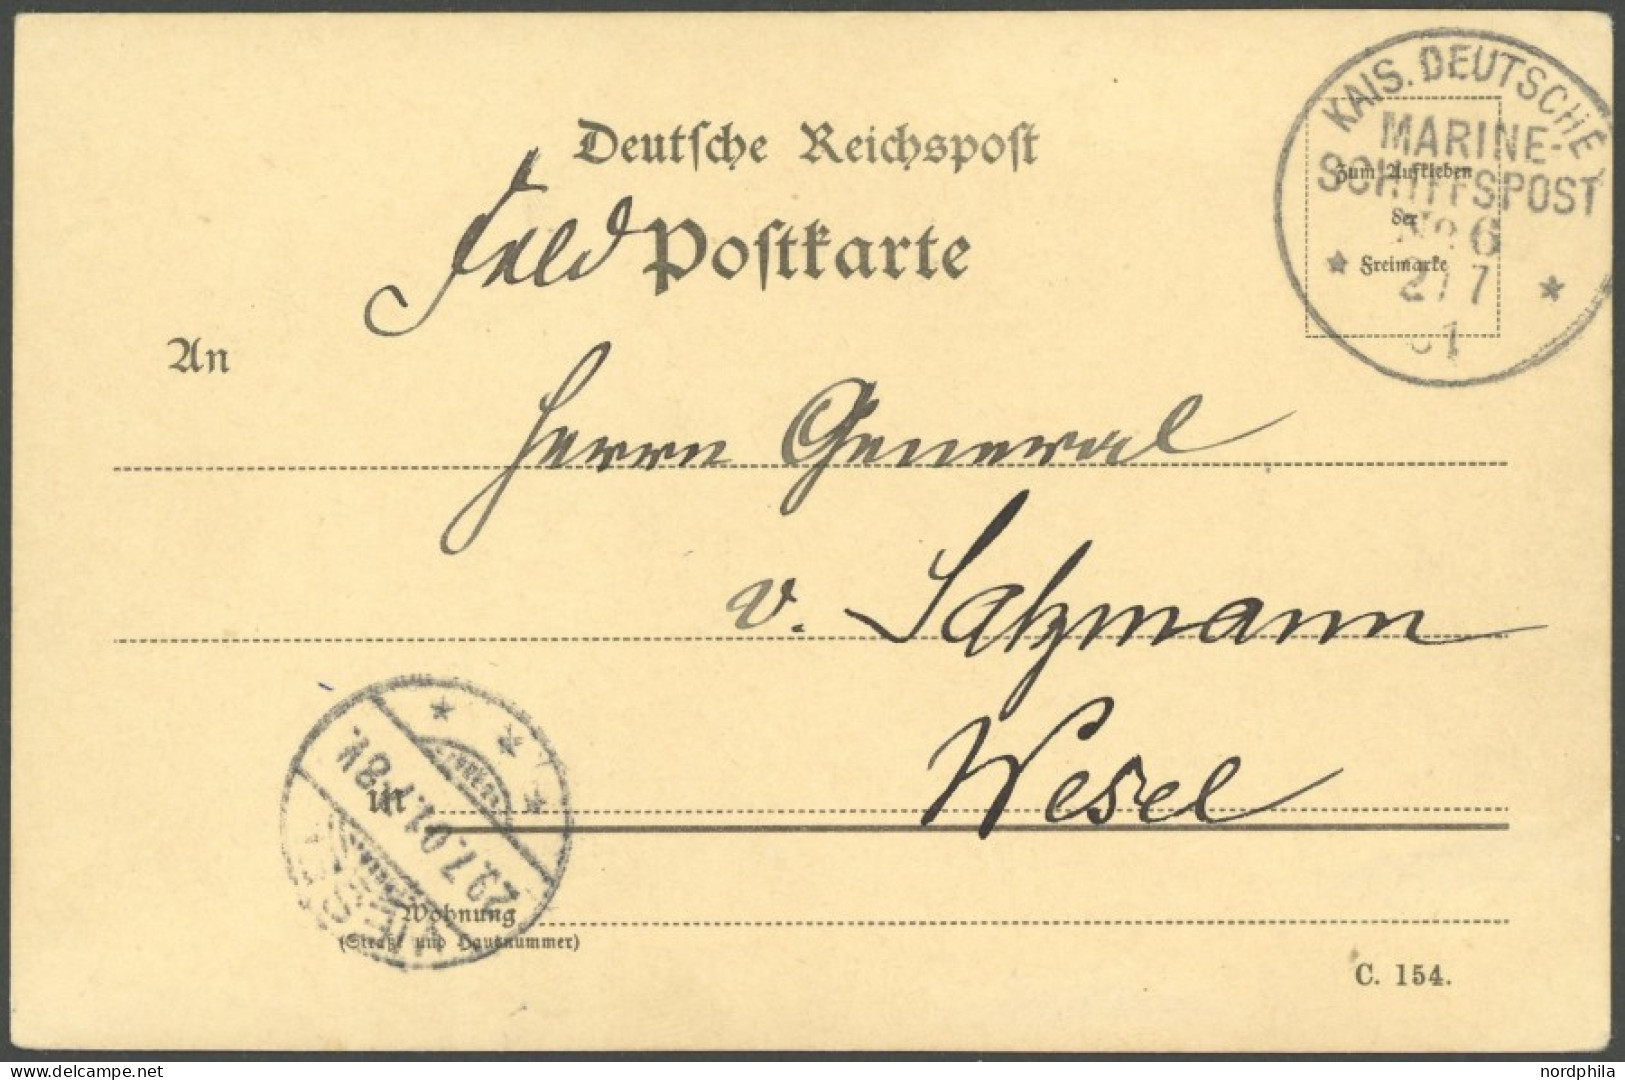 KAIS. DEUTSCHE
MARINE-
SCHIFFSPOST
No 6
7
1
Deutsche Reichspost
Feld Postkarte
Zum Aufkleben
der
Freimarke
An
Herrn General
v. Salzmann
in Wesel
WESEL
29.7.01.7-8V.
Wohnung
(Straße und Hausnummer)
C. 154.
delcampe.net
nordphila